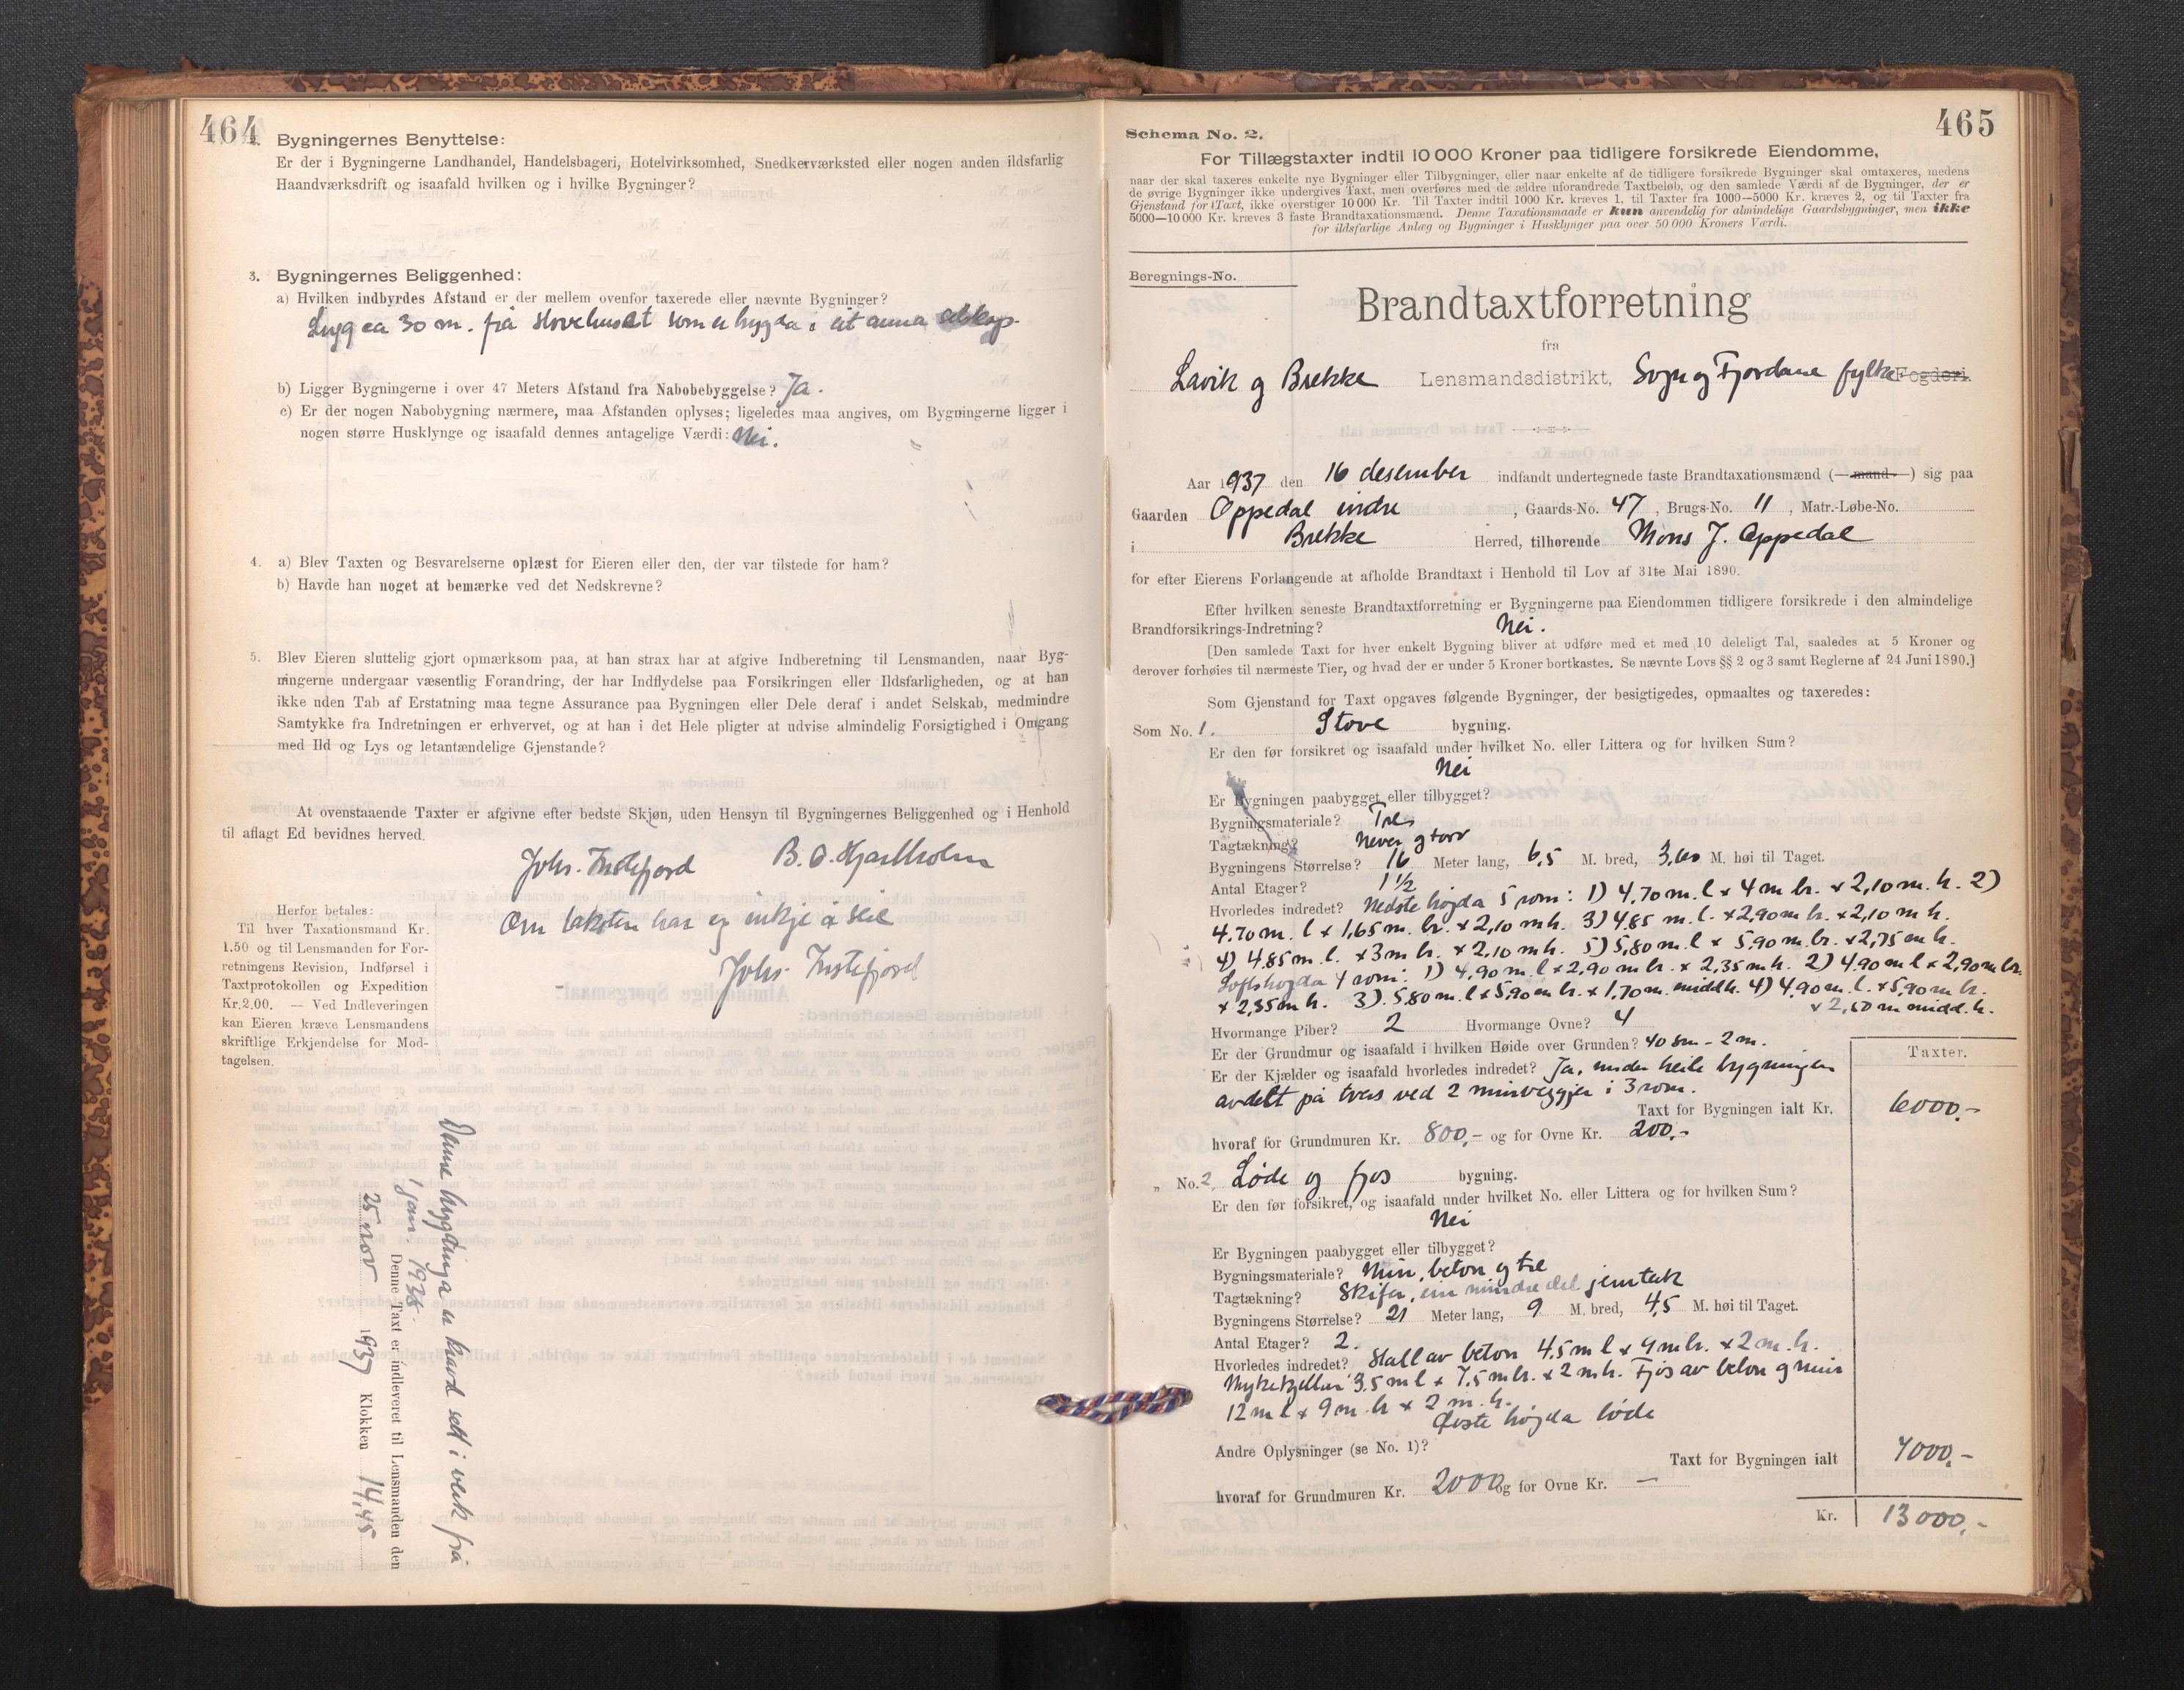 464
2. Bygningernes Benyttelse:
Er der i Bygningerne Landhandel, Handelsbageri, Hotelvirksomhed, Snedkerværksted eller nogen anden ildsfarlig
Haandværksdrift og isaafald hvilken og i hvilke Bygninger?
3. Bygningernes Beliggenhed:
a) Hvilken indbyrdes Afstand er der mellem ovenfor taxerede eller nævnte Bygninger?
Ligg ca 30 m. frå stovehuset som er bygda i eit anna selskap.
b) Ligger Bygningerne i over 47 Meters Afstand fra Nabobebyggelse? Ja.
c) Er der nogen Nabobygning nærmere, maa Afstanden oplyses; ligeledes maa angives, om Bygningerne ligger i
nogen større Husklynge og isaafald dennes antagelige Værdi: Nei.
4. a) Blev Taxten og Besvarelserne oplæst for Eieren eller den, der var tilstede for ham?
b) Havde han noget at bemærke ved det Nedskrevne?
5. Blev Eieren sluttelig gjort opmærksom paa, at han strax har at afgive Indberetning til Lensmanden, naar Byg-
ningerne undergaar væsentlig Forandring, der har Indflydelse paa Forsikringen eller Ildsfarligheden, og at han
ikke uden Tab af Erstatning maa tegne Assurance paa Bygningen eller Dele deraf i andet Selskab, medmindre
Samtykke fra Indretningen er erhvervet, og at han i det Hele pligter at udvise almindelig Forsigtighed i Omgang
med Ild og Lys og letantændelige Gjenstande?
At ovenstaaende Taxter er afgivne efter bedste Skjøn, uden Hensyn til Bygningernes Beliggenhed og i Henhold
til aflagt Ed bevidnes herved.
Johs. Instefjord B. O. Hjartholm
Om taksten har eg inkje å seie
Johs. Instefjord
Herfor betales:
Til hver Taxationsmand Kr.
1.50 og til Lensmanden for For-
retningens Revision, Indførsel i
Taxtprotokollen og Expedition
Kr. 2.00. — Ved Indleveringen
kan Eieren kræve Lensmandens
skriftlige Erkjendelse for Mod-
tagelsen.
Denne bygdinga er kravd sett i verk frå
1 jan. 1938.
Denne Taxt er indleveret til Lensmanden den
25 nov 1937 Klokken 14,45
465
Schema No. 2.
For Tillægstaxter indtil 10 000 Kroner paa tidligere forsikrede Eiendomme,
naar der skal taxeres enkelte nye Bygninger eller Tilbygninger, eller naar enkelte af de tidligere forsikrede Bygninger skal omtaxeres, medens
de øvrige Bygninger ikke undergives Taxt, men overføres med de ældre uforandrede Taxtbeløb, og den samlede Værdi af de Bygninger, der er
Gjenstand for Taxt, ikke overstiger 10 000 Kr. Til Taxter indtil 1000 Kr. kræves 1, til Taxter fra 1000—5000 Kr. kræves 2, og til Taxter fra
5000—10 000 Kr. kræves 3 faste Brandtaxationsmænd. Denne Taxationsmaade er kun anvendelig for almindelige Gaardsbygninger, men ikke
for ildsfarlige Anlæg og Bygninger i Husklynger paa over 50 000 Kroners Værdi.
Beregnings-No.
Brandtaxtforretning
fra
Lavik og Brekke Lensmandsdistrikt, Sogn og Fjordane fylke Fogderi.
Aar 1937 den 16 desember indfandt undertegnede faste Brandtaxationsmænd (—mand—) sig paa
Gaarden Oppedal indre, Gaards-No. 47, Brugs-No. 11, Matr.-Løbe-No.
i Brekke Herred, tilhørende Mons J. Oppedal
for efter Eierens Forlangende at afholde Brandtaxt i Henhold til Lov af 31te Mai 1890.
Efter hvilken seneste Brandtaxtforretning er Bygningerne paa Eiendommen tidligere forsikrede i den almindelige
Brandforsikrings-Indretning? Nei.
[Den samlede Taxt for hver enkelt Bygning bliver at udføre med et med 10 deleligt Tal, saaledes at 5 Kroner og
derover forhøies til nærmeste Tier, og hvad der er under 5 Kroner bortkastes. Se nævnte Lovs §§ 2 og 3 samt Reglerne af 24 Juni 1890.]
Som Gjenstand for Taxt opgaves følgende Bygninger, der besigtigedes, opmaaltes og taxeredes:
Som No. 1. Stove bygning.
Er den før forsikret og isaafald under hvilket No. eller Littera og for hvilken Sum?
Nei
Er Bygningen paabygget eller tilbygget?
Bygningsmateriale? Tre
Tagtækning? Never og torv
Bygningens Størrelse? 16 Meter lang, 6,5 M. bred, 3,60 M. høi til Taget.
Antal Etager? 1 ½
Hvorledes indredet? Nedste høgda 5 rom: 1) 4,70 m. l x 4 m br. x 2,10 m. h. 2)
4,70 m. l x 1,65 m. br. x 2,10 m h. 3) 4,85 m. l. x 2,90 m br. x 2,10 m h.
4) 4,85 m. l. x 3 m br. x 2,10 m h. 5) 5,80 m. l x 5,90 m. br. x 2,75 m h.
Loftshøgda 4 rom: 1) 4,90 m. l x 2,90 m br. x 2,35 m h. 2) 4,90 m l x 2,90 m br.
x 2,35 m h. 3) 5,80 m. l x 5,90 m br. x 1,70 m. midd h. 4) 4,90 m. l. x 5,90 m br.
x 2,50 m midd. h.
Hvormange Piber? 2 Hvormange Ovne? 4
Er der Grundmur og isaafald i hvilken Høide over Grunden? 40 sm - 2 m.
Er der Kjælder og isaafald hvorledes indredet? Ja, under heile bygningen
avdelt på tvers ved 2 murveggjer i 3 rom.
Taxter.
Taxt for Bygningen ialt Kr. 6000,-
hvoraf for Grundmuren Kr. 800,- og for Ovne Kr. 200,-
„ No. 2. Løde og fjos bygning.
Er den før forsikret, og isaafald under hvilket No. eller Littera og for hvilken Sum?
Nei
Er Bygningen paabygget eller tilbygget?
Bygningsmateriale? Mur, beton og tre
Tagtækning? Skifer, ein mindre del jerntak
Bygningens Størrelse? 21 Meter lang, 9 M. bred, 4,5 M. høi til Taget.
Antal Etager? 2.
Hvorledes indredet? Stall av beton 4.5 m l x 9 m br. x 2 m. h.
Mykekjellar 3.5 m l x 7,5 m br. x 2 m h. Fjos av beton og mur
12 m l x 9 m. br x 2 m. h.
Øvste høgda løde
Andre Oplysninger (se No. 1)?
Taxt for Bygningen ialt 7000,-
hvoraf for Grundmuren Kr. 2000 og for Ovne Kr. —
Kr. 13000,-